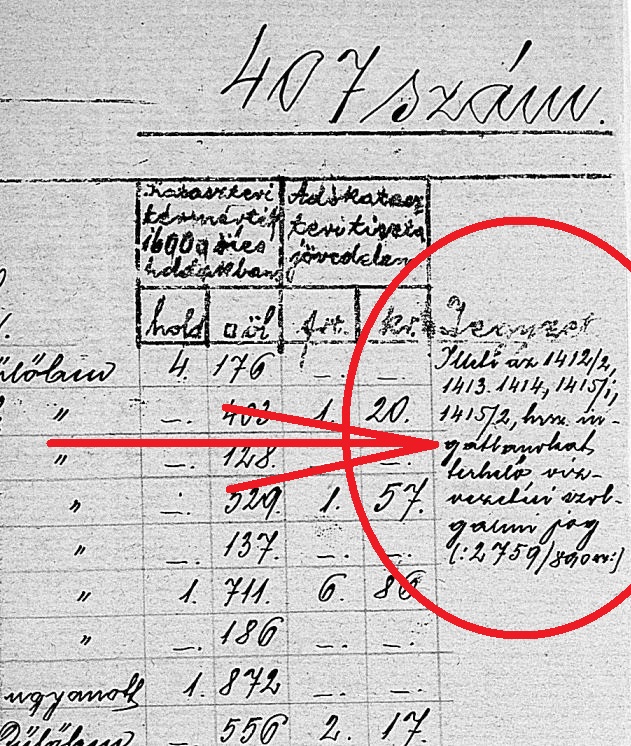 407 szám.
Kataszteri Adókatasz
térmérték teri tiszta
1600 □ öles jövedelem
holdakban
hold □ öl frt. kr. Jegyzet
ülőlam 4. 176 — —
" — 403 1. 20.
" — 128. — —
" — 529. 1. 57.
" — 137. — —
" 1. 711. 6. 86
" — 186 — —
ugyanott 1. 872 — —
— 556 2. 17.
Illeti az 1412/2,
1413. 1414, 1415/1,
1415/2, hrsz. in-
gatlanokat
terhelő viz-
vezetési szol-
galmi jog
(: 2759/890 :)